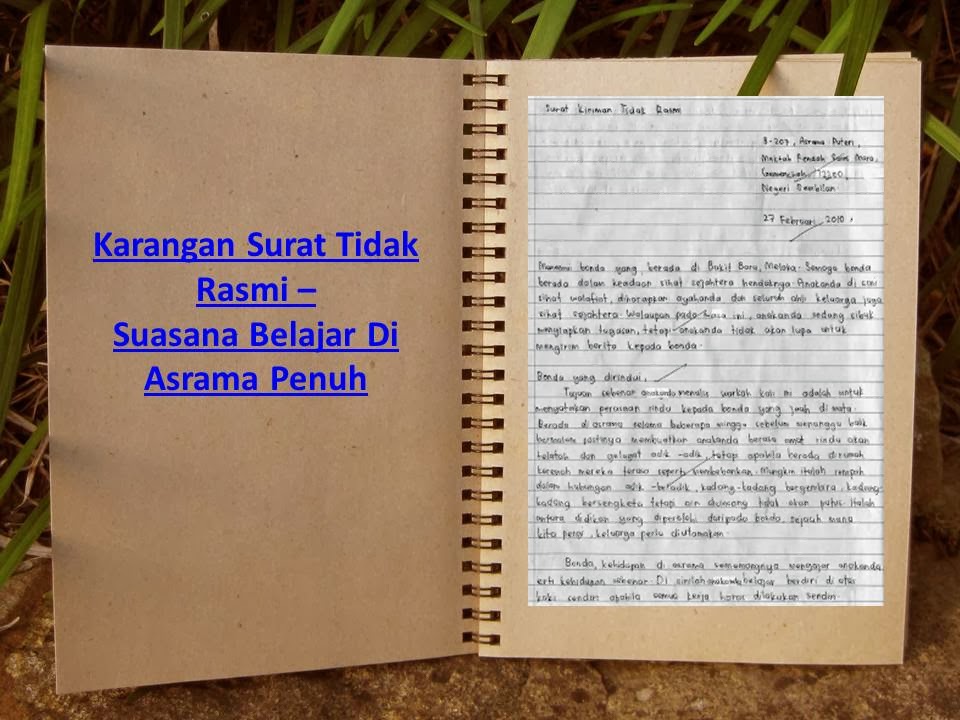 Karangan Surat Tidak
Rasmi –
Suasana Belajar Di
Asrama Penuh
Surat Kiriman Tidak Rasmi
B-207, Asrama Puteri,
Maktab Rendah Sains Mara,
72200,
Negeri Sembilan.
27 Februari 2010.
Menemui bonda yang berada di Bukit Baru, Melaka. Semoga bonda
berada dalam keadaan sihat sejahtera hendaknya. Anakanda di sini
sihat walafiat, diharapkan ayahanda dan seluruh ahli keluarga juga
sihat sejahtera. Walaupun pada masa ini, anakanda sedang sibuk
menyiapkan tugasan, tetapi anakanda tidak akan lupa untuk
mengirim berita kepada bonda.
Bonda yang dirindui,
Tujuan sebenar anakanda menulis warkah kali ini adalah untuk
menyatakan perasaan rindu kepada bonda yang jauh di mata.
Berada di asrama selama beberapa minggu sebelum menunggu balik
bermalam pastinya membuatkan anakanda berasa amat rindu akan
telatah dan gelagat adik-adik, tetapi apabila berada dirumah
karenah mereka terasa seperti membebankan. Mungkin itulah rempah
dalam hubungan adik-beradik, kadang-kadang bergembira, kadang-
kadang bersengketa tetapi air dicincang tidak akan putus. Itulah
antara didikan yang diperolehi daripada bonda, sejauh mana
kita pergi, keluarga perlu diutamakan.
Bonda, kehidupan di asrama sememangnya mengajar anakanda
erti kehidupan sebenar. Di sinilah anakanda belajar berdiri di atas
kaki sendiri apabila semua kerja harus dilakukan sendiri.